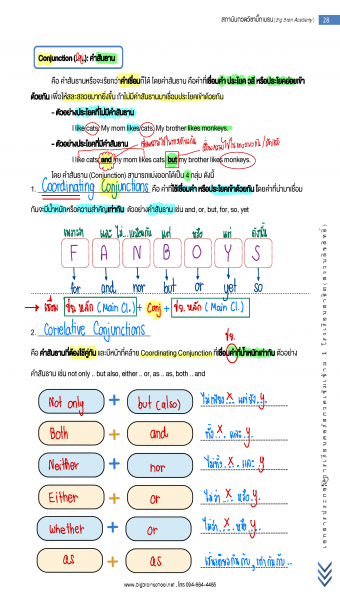 สถาบันกวดวิชาบิ๊กเบรน (Big Brain Academy) 28
Conjunction (n.): คำสันธาน
คือ คำสันธานหรือจะเรียกว่าคำเชื่อมก็ได้ โดยคำสันธาน คือคำที่เชื่อมคำ ประโยค วลี หรือประโยคย่อยเข้า
ด้วยกัน เพื่อให้สละสลวยมากยิ่งขึ้น ถ้าไม่มีคำสันธานมาเชื่อมประโยคเข้าด้วยกัน
- ตัวอย่างประโยคที่ไม่มีคำสันธาน
I like cats. My mom likes cats. My brother likes monkeys.
- ตัวอย่างประโยคที่มีคำสันธาน
I like cats and my mom likes cats but my brother likes monkeys.
โดย คำสันธาน (Conjunction) สามารถแบ่งออกได้เป็น 4 กลุ่ม ดังนี้
1. Coordinating Conjunctions คือ คำที่ใช้เชื่อมคำ หรือประโยคเข้าด้วยกัน โดยคำที่นำมาเชื่อม
กันจะมีน้ำหนักหรือความสำคัญเท่ากัน ตัวอย่างคำสันธาน เช่น and, or, but, for, so, yet
เพราะว่า และ ไม่...เหมือนกัน แต่ หรือ แต่ ดังนั้น
F A N B O Y S
for and nor but or yet so
→ เชื่อม ปย. หลัก (Main Cl.) + Conj + ปย. หลัก (Main Cl.)
2. Correlative Conjunctions
คือ คำสันธานที่ต้องใช้คู่กัน และมีหน้าที่คล้าย Coordinating Conjunction ที่เชื่อมคำที่น้ำหนักเท่ากัน ตัวอย่าง
คำสันธาน เช่น not only .. but also, either .. or, as .. as, both .. and
Not only + but (also) ไม่เพียง x แต่ยัง y
Both + and ทั้ง x และ y
Neither + nor ไม่ทั้ง x และ y
Either + or ไม่ว่า x หรือ y
whether + or ไม่ว่า x หรือ y
as + as
www.bigbrainschool.net , โทร 094-664-4465